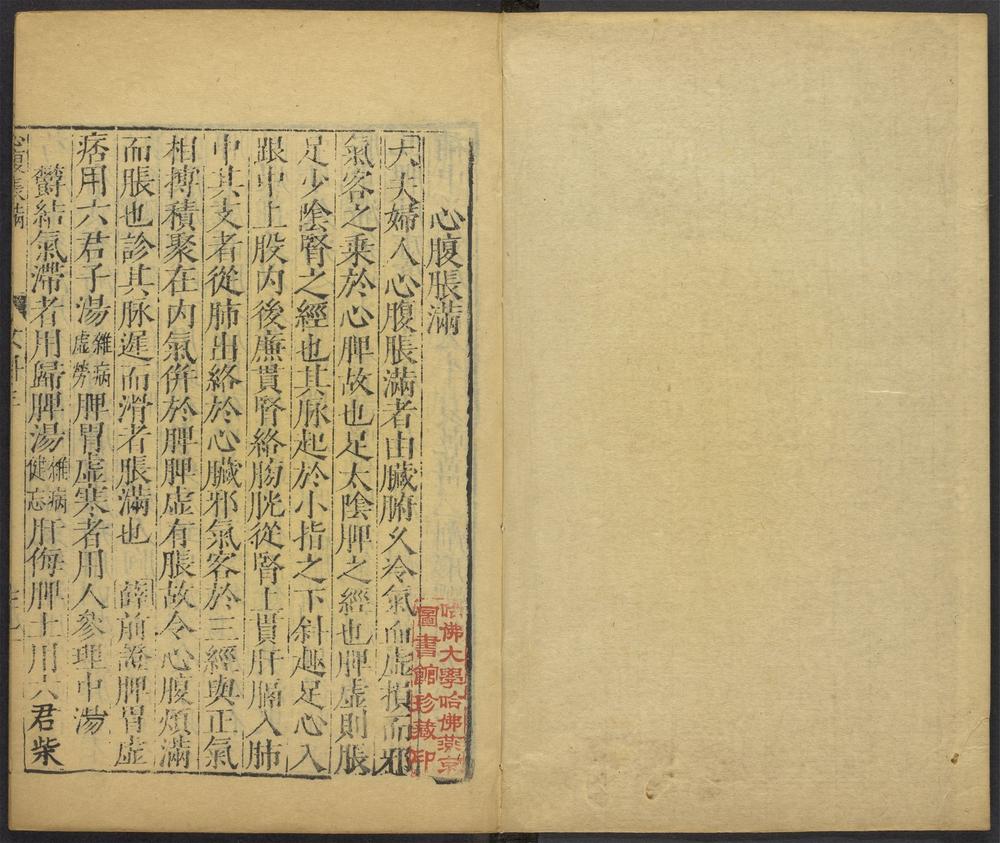 心腹脹滿
大夫婦人心腹脹滿者由臟腑久冷氣血虛損而邪
氣客之乘於心脾故也足太陰脾之經也脾虛則脹
足少陰腎之經也其脉起於小指之下斜趣足心入
跟中上股内後廉貫腎絡肪胱從腎上貫肝膈入肺
中其支者從肺出絡於心臟邪氣客於三經與正氣
相搏積聚在内氣併於脾脾虛有脹故令心腹煩滿
而脹也診其脉遲而滑者脹滿也 薛前證脾胃虛
痞用六君子湯雜病虛勞脾胃虛寒者用人參理中湯
欝結氣滯者用歸脾湯雜病健忘肝侮脾土用六君柴
心腹脹滿
哈佛大學哈佛燕京
圖書館珍藏印